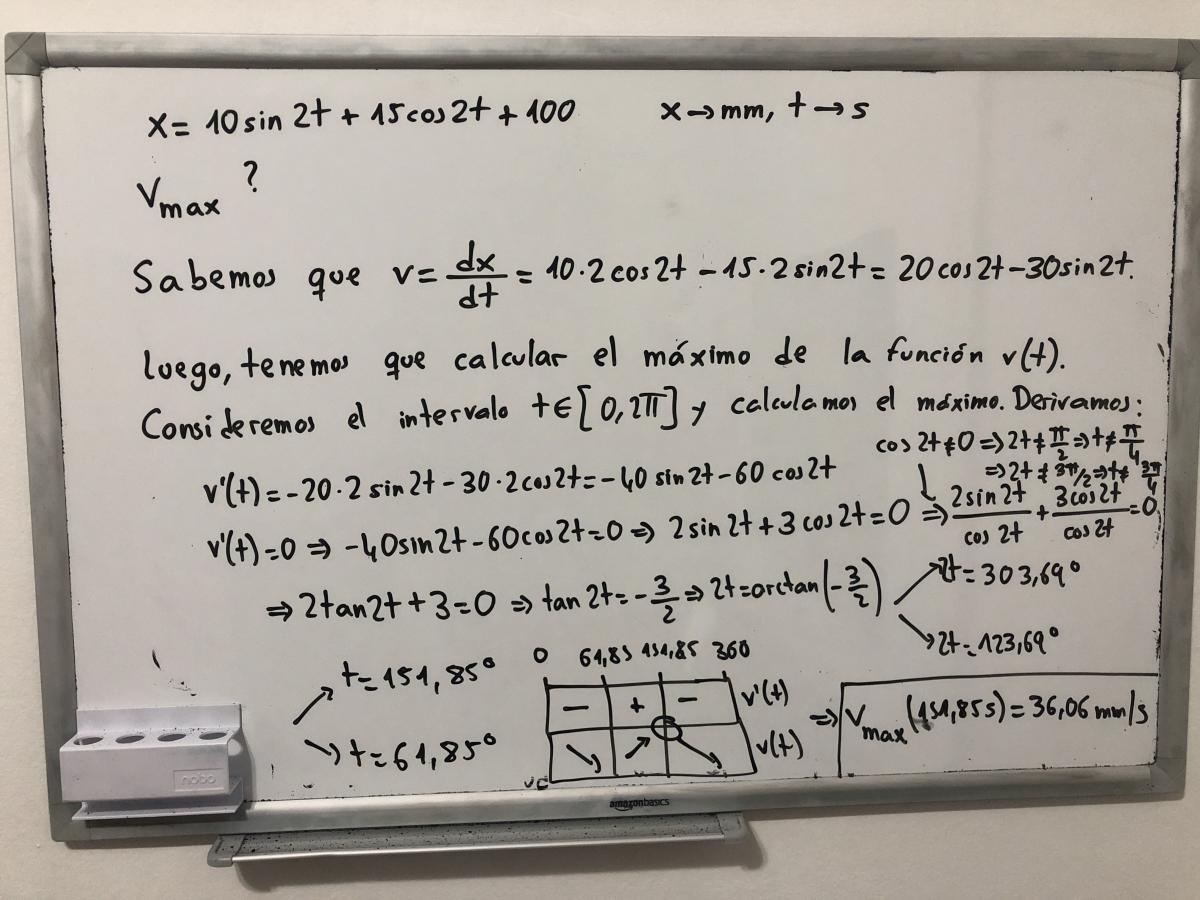 x = 10 sin 2t + 15 cos 2t + 100 x → mm, t → s
Vmax ?
Sabemos que v = dx/dt = 10·2 cos 2t - 15·2 sin 2t = 20 cos 2t - 30 sin 2t.
luego, tenemos que calcular el máximo de la función v(t).
Consideremos el intervalo t ∈ [0, 2π] y calculamos el máximo. Derivamos:
cos 2t ≠ 0 ⇒ 2t ≠ π/2 ⇒ t ≠ π/4
⇒ 2t ≠ 3π/2 ⇒ t ≠ 3π/4
v'(t) = -20·2 sin 2t - 30·2 cos 2t = -40 sin 2t - 60 cos 2t
v'(t) = 0 ⇒ -40 sin 2t - 60 cos 2t = 0 ⇒ 2 sin 2t + 3 cos 2t = 0 ⇒ 2 sin 2t/cos 2t + 3 cos 2t/cos 2t = 0
⇒ 2 tan 2t + 3 = 0 ⇒ tan 2t = -3/2 ⇒ 2t = arctan(-3/2)
2t = 303,69°
2t = 123,69°
t = 151,85°
t = 61,85°
0 61,85 151,85 360
- + - v'(t)
↘ ↗ ↘ v(t)
⇒ Vmax (151,85 s) = 36,06 mm/s
nobo
amazonbasics